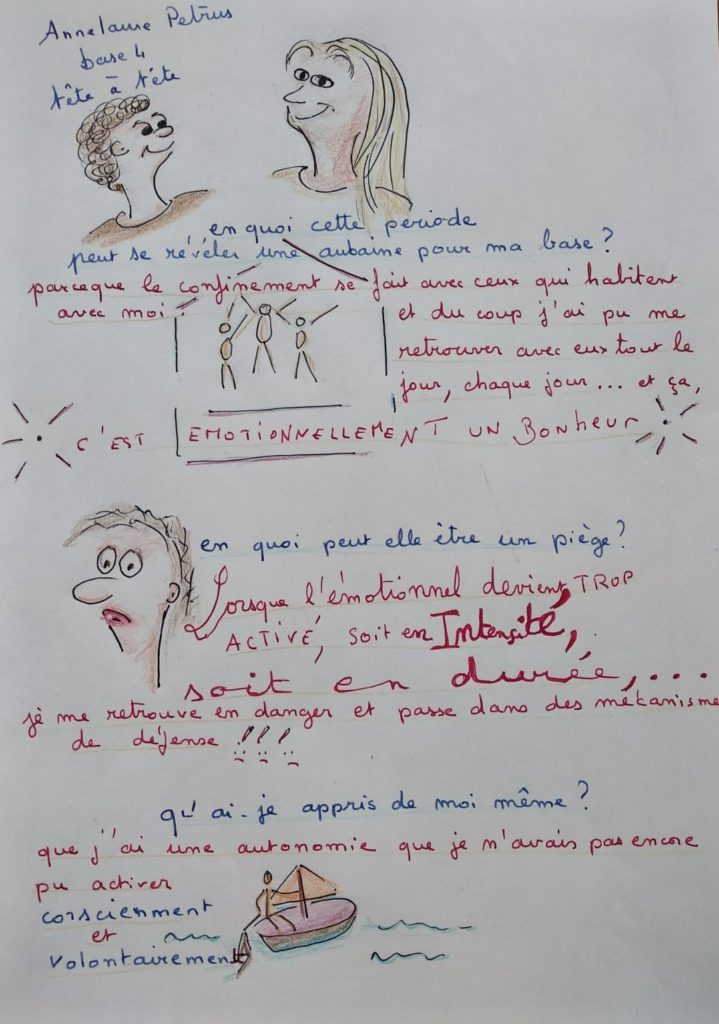 Annelaure Petrus
base 4
tête à tête
en quoi cette période
peut se révéler une aubaine pour ma base ?
parceque le confinement se fait avec ceux qui habitent
avec moi :
et du coup j'ai pu me
retrouver avec eux tout le
jour, chaque jour ... et ça,
C'EST EMOTIONNELLEMENT UN BONHEUR
en quoi peut elle être un piège ?
Lorsque l'émotionnel devient TROP
ACTIVÉ, soit en Intensité,
soit en durée, ...
je me retrouve en danger et passe dans des mékanisme
de défense !!!
qu'ai-je appris de moi même ?
que j'ai une autonomie que je n'avais pas encore
pu activer
consciemment
et
volontairement